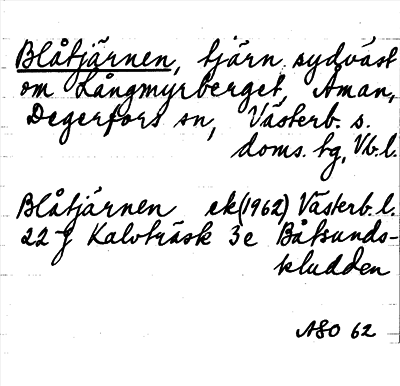 Blåtjärnen, tjärn sydväst
om Långmyrberget, Åman,
Degerfors sn, Västerb. s.
doms. tg, Vb. l.
Blåtjärnen ek (1962) Västerb. l.
22 J Kalvträsk 3e Båtsunds-
kludden
ASO 62